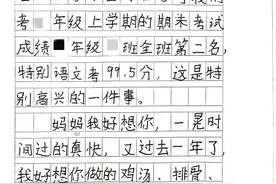 考 年级上学期的期末考试
成绩 年级 班全班第二名,
特别语文考99.5分,这是特
别高兴的一件事。
妈妈我好想你,一晃时
间过的真快,又过去一年了,
我好想你做的鸡汤、排骨、